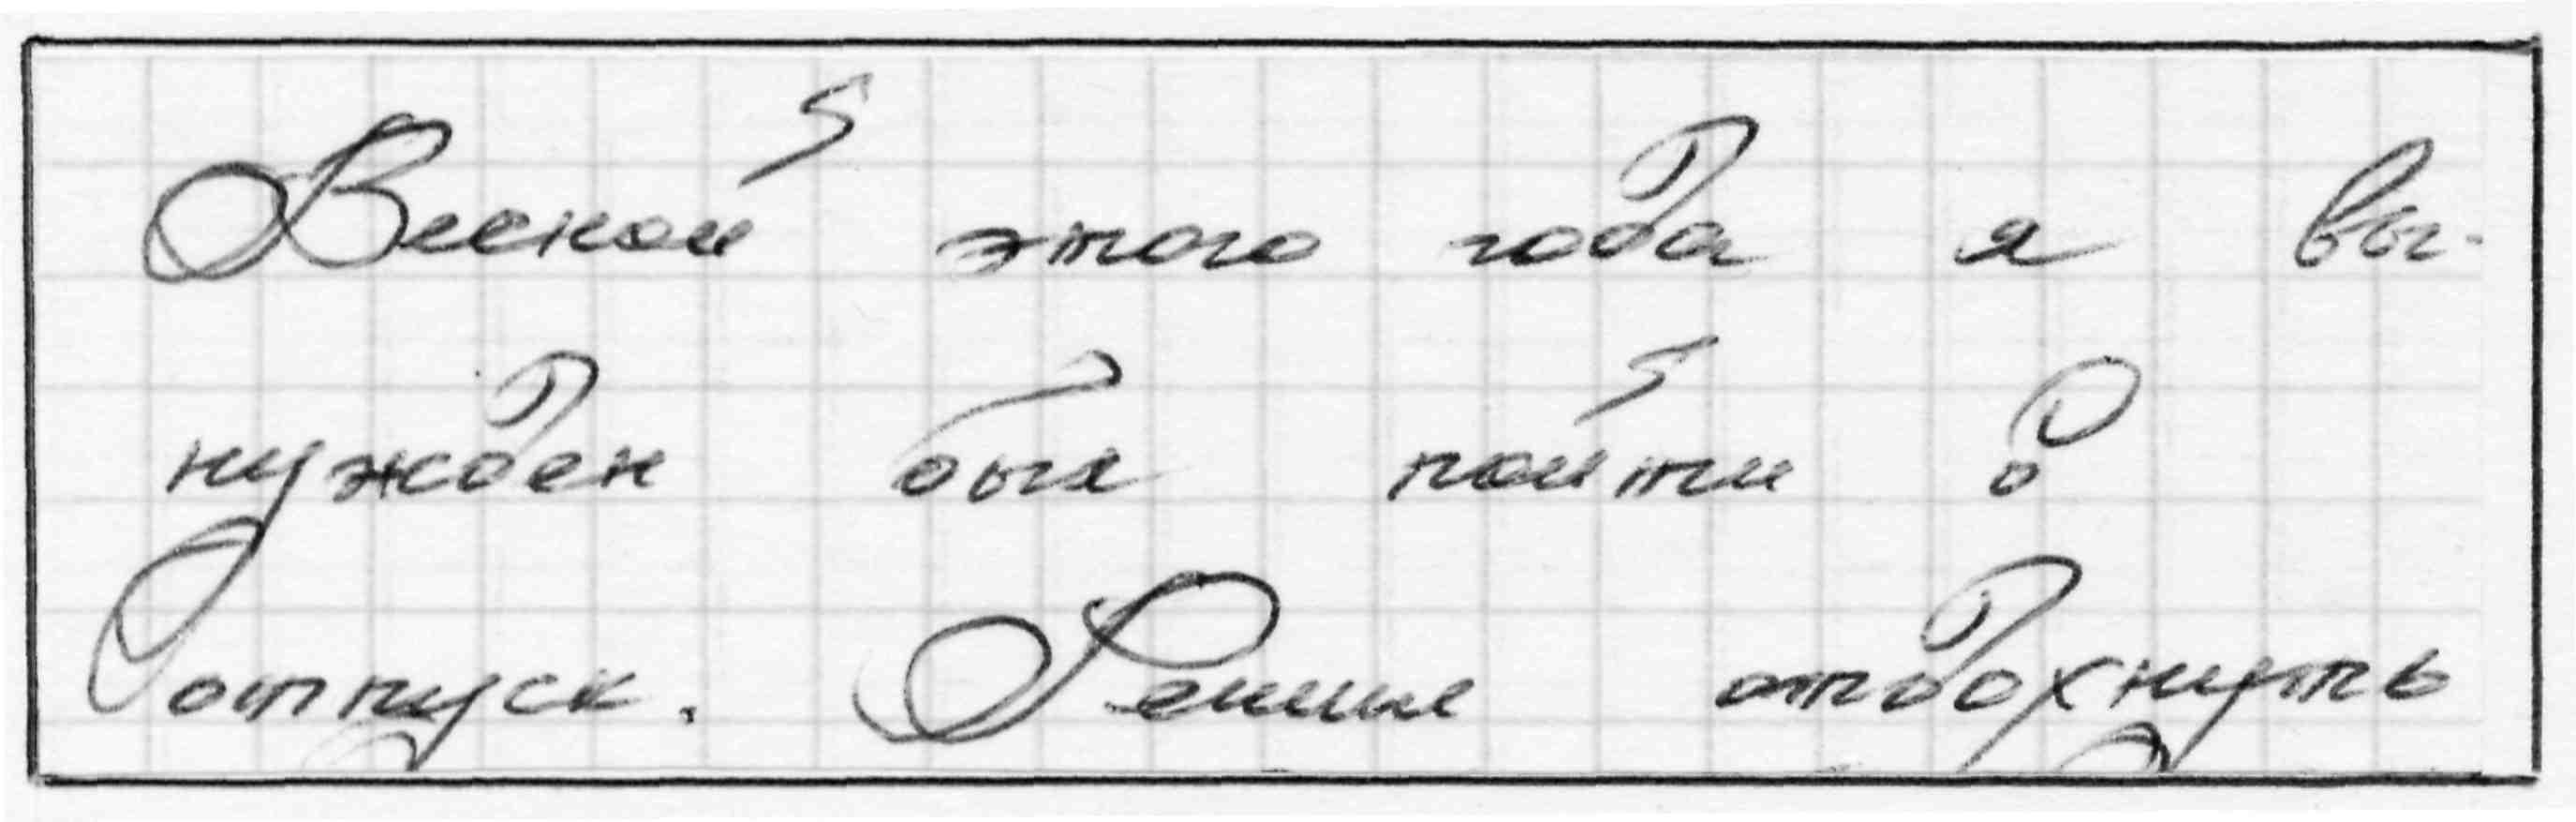 Весной этого года я вы-
нужден был пойти в
отпуск. Решил отдохнуть